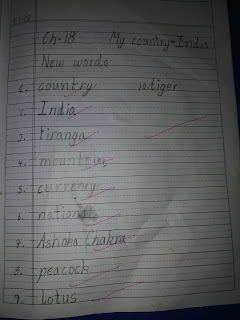 Ch-18 My country-India
New words
1. country 10. tiger
2. India
3. tiranga
4. mountains
5. currency
6. national
7. Ashoka Chakra
8. peacock
9. Lotus